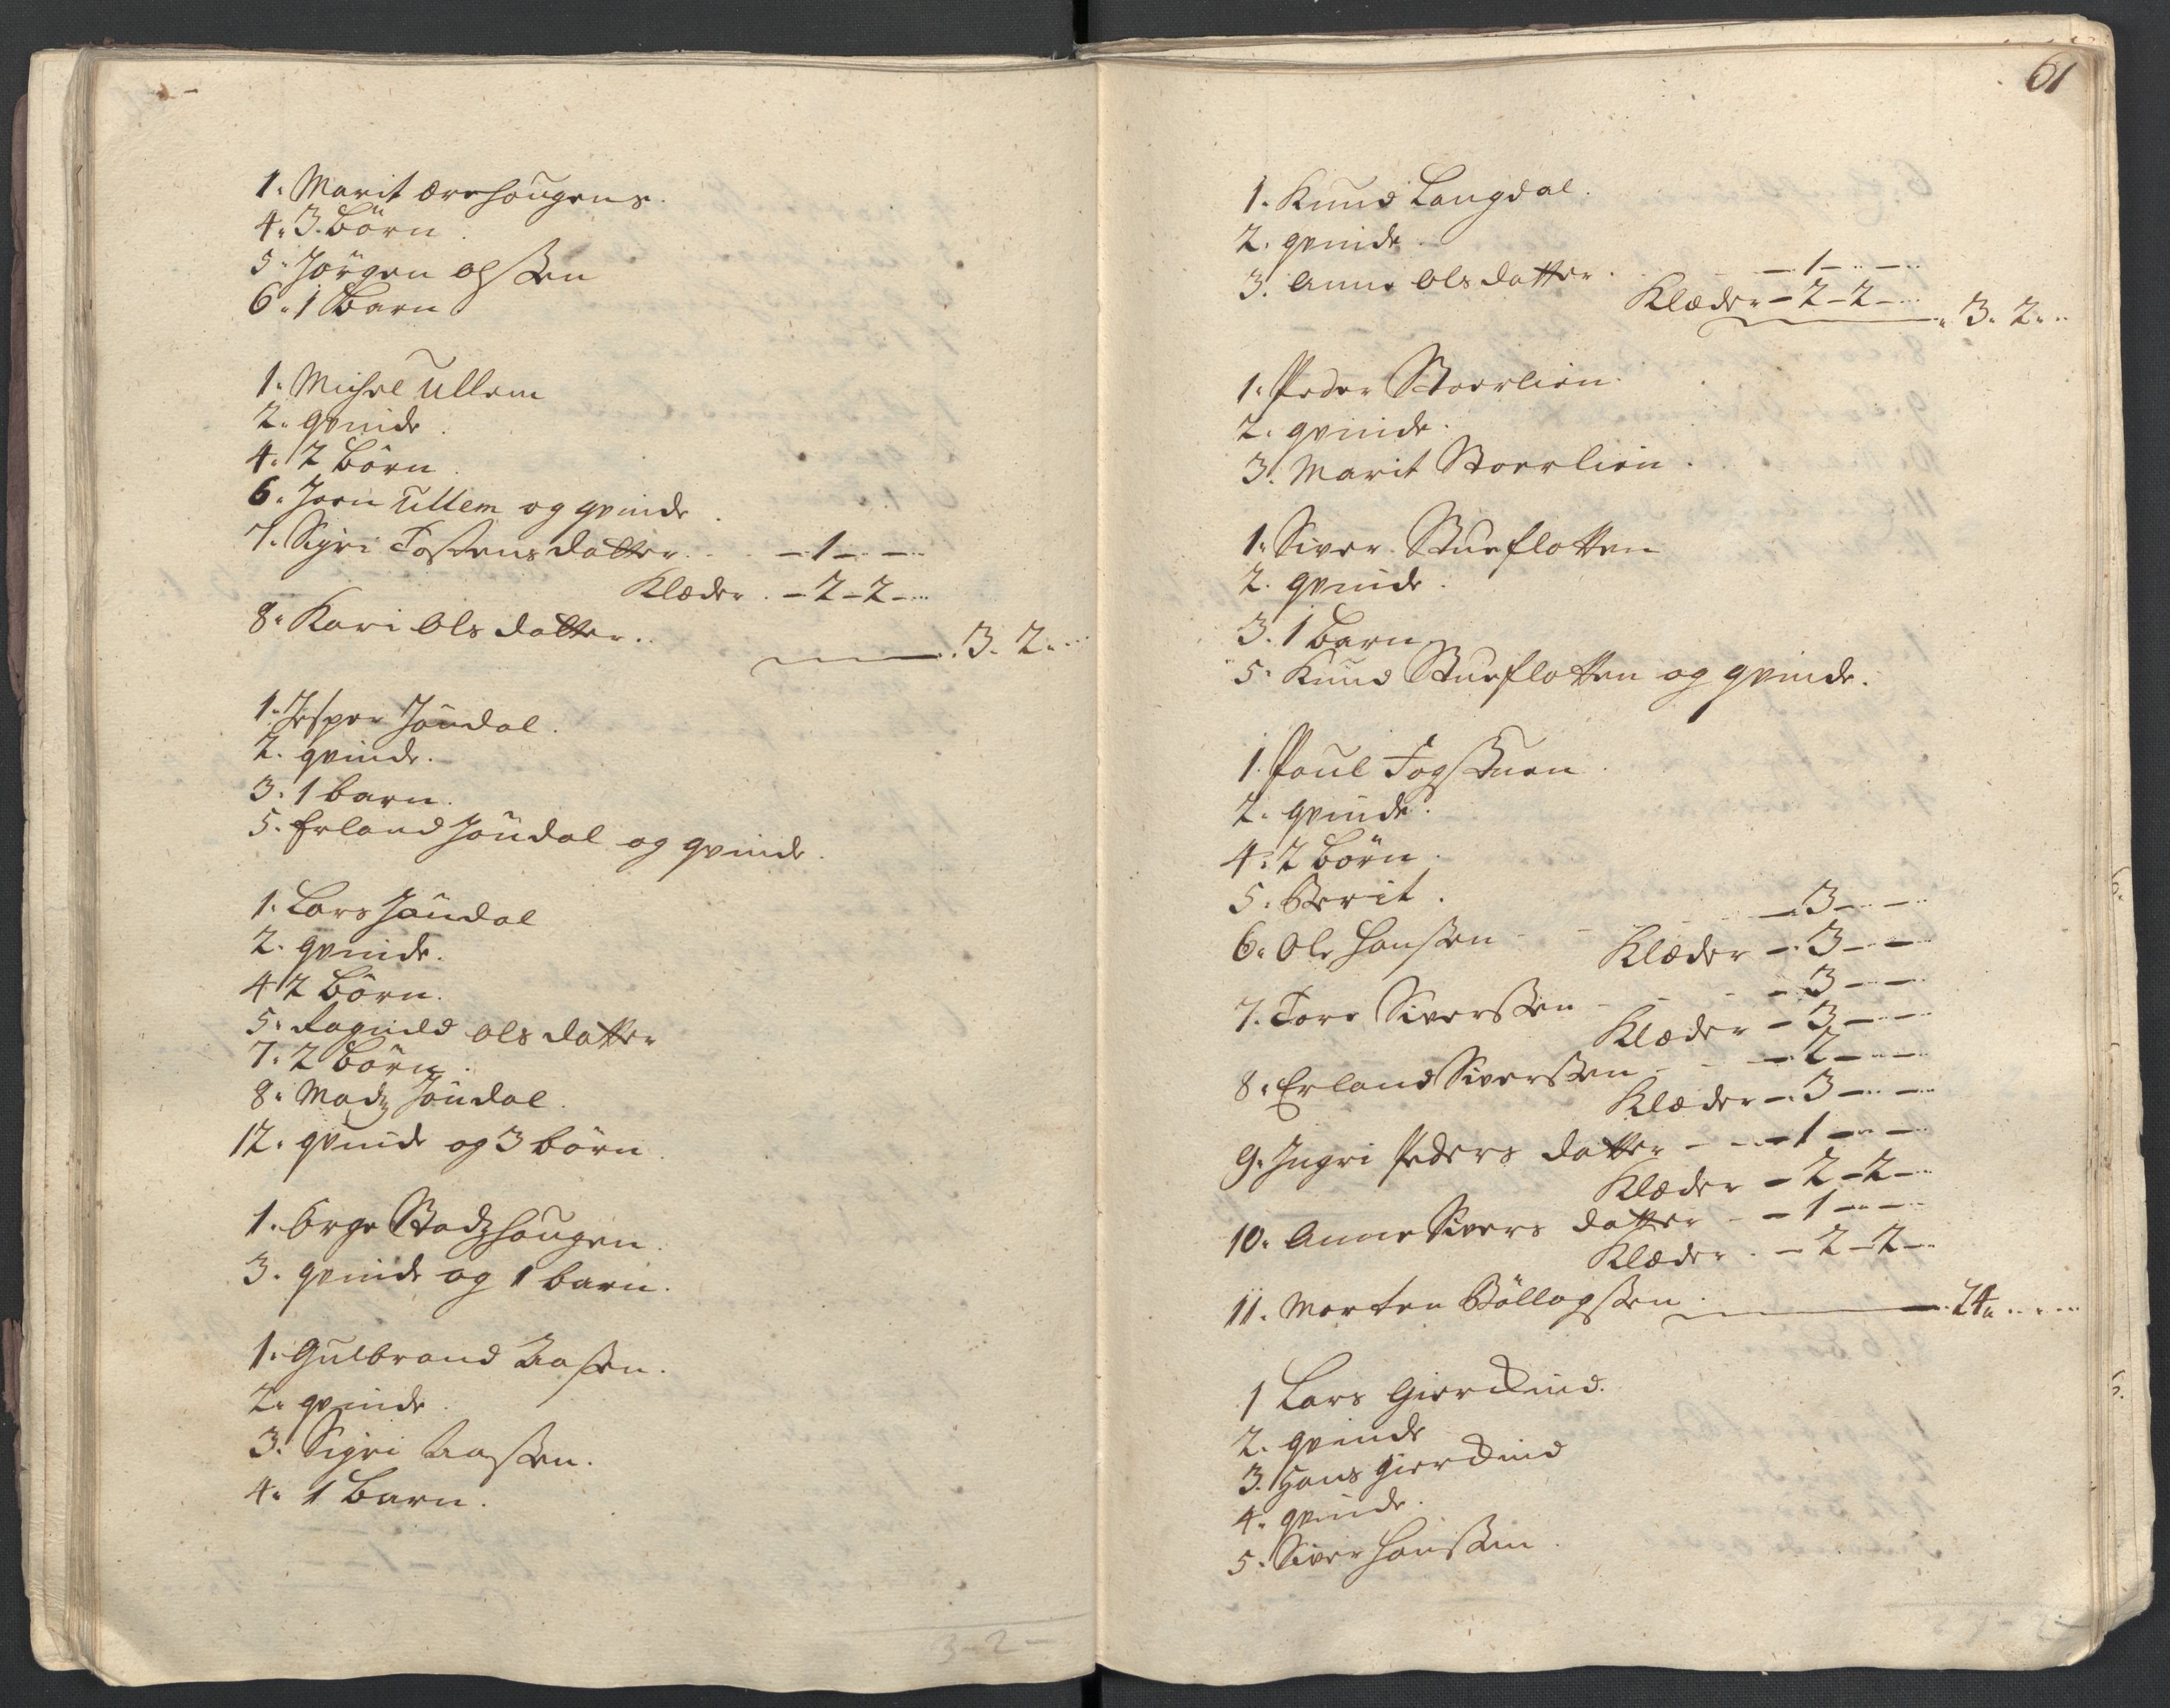 1. Marit ørehougens.
4. 3 börn.
5. Jörgen olssen
6. 1 Barn
1. Michel Ullem
2. qvinde.
4. 2 börn.
6. Joen Ullem og qvinde.
7. Sigri Tostens datter. . . - 1 - -
Klæder. - 2 - 2 -
8. Kari Ols datter. .
3. 2. .
1. Jesper Jöndal.
2. qvinde.
3. 1 barn.
5. Erland Jöndal og qvinde.
1. Lars Jöndal
2. qvinde.
4 2 Börn.
5. Ragnild ols datter
7. 2 Börn.
8. Madz Jöndal.
12. qvinde og 3 börn.
1. Brye Stadzhougen.
3. qvinde og 1 barn.
1. Gulbrand Aasen.
2. qvinde.
3. Sigri Aassen.
4. 1 Barn.
3 - 2 -
61
1. Knud Langdal.
2. qvinde.
3. Anne Ols datter. - 1 - -
Klæder - 2 - 2 -
3. 2. .
1. Peder Stoerlien.
2. qvinde.
3. Marit Stoerlien.
1. Siver Stueflotten
2. qvinde.
3. 1 barn
5. Knud Stueflotten og qvinde.
1. Poul Fogstuen.
2. qvinde.
4. 2 börn.
5. Berit.
- 3 - -
6. Ole Hanssen - -
Klæder - 3 - -
7. Tore Siverssen - - - 3 - -
Klæder - 3 - -
8. Erland Siverssen - - - 2 - -
Klæder - 3 - -
9. Ingri Peders datter - - - 1 - -
Klæder - 2 - 2 -
10. Anne Sivers datter - - 1 - -
Klæder. - 2 - 2 -
11. Morten Böllogssen. 24. . .
1 Lars Giordend.
2. qvinde
3. Hans Giordend
4. qvinde.
5. Siver Hanssen.